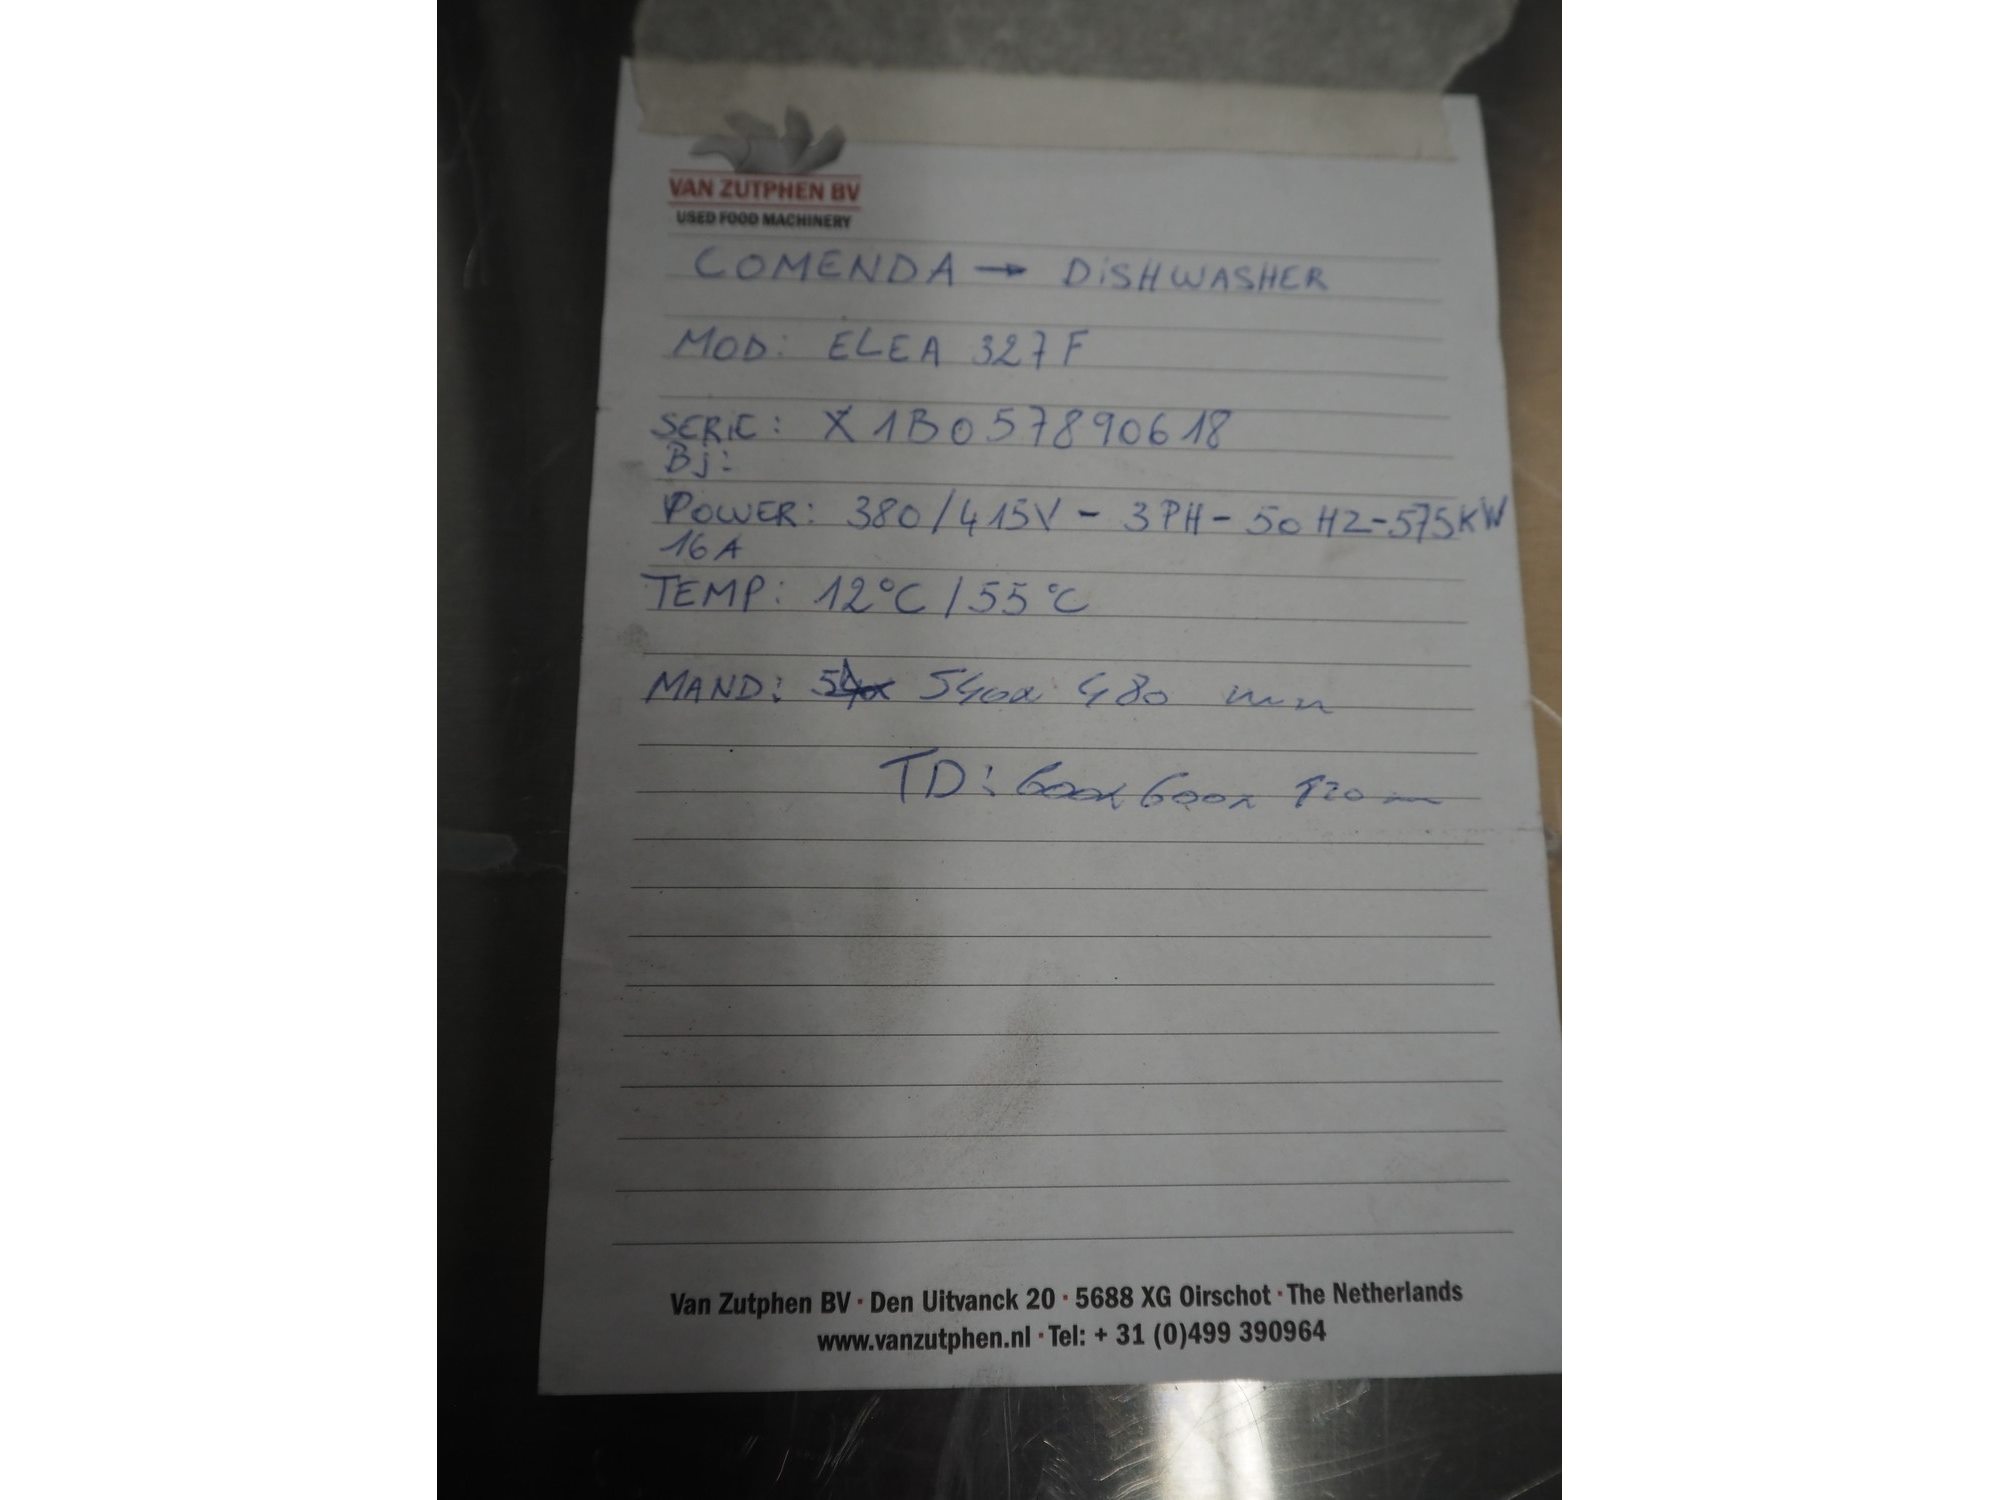 VAN ZUTPHEN BV
USED FOOD MACHINERY
COMENDA → DiSHWASHER
MOD: ELEA 327F
SERiE: X1B057890618
Bj:
POWER: 380/415V - 3PH - 50HZ-575KW
16A
TEMP: 12°C / 55°C
MAND: 540x 480 mm
TD: 600x600x mm
Van Zutphen BV · Den Uitvanck 20 · 5688 XG Oirschot · The Netherlands
www.vanzutphen.nl · Tel: + 31 (0)499 390964